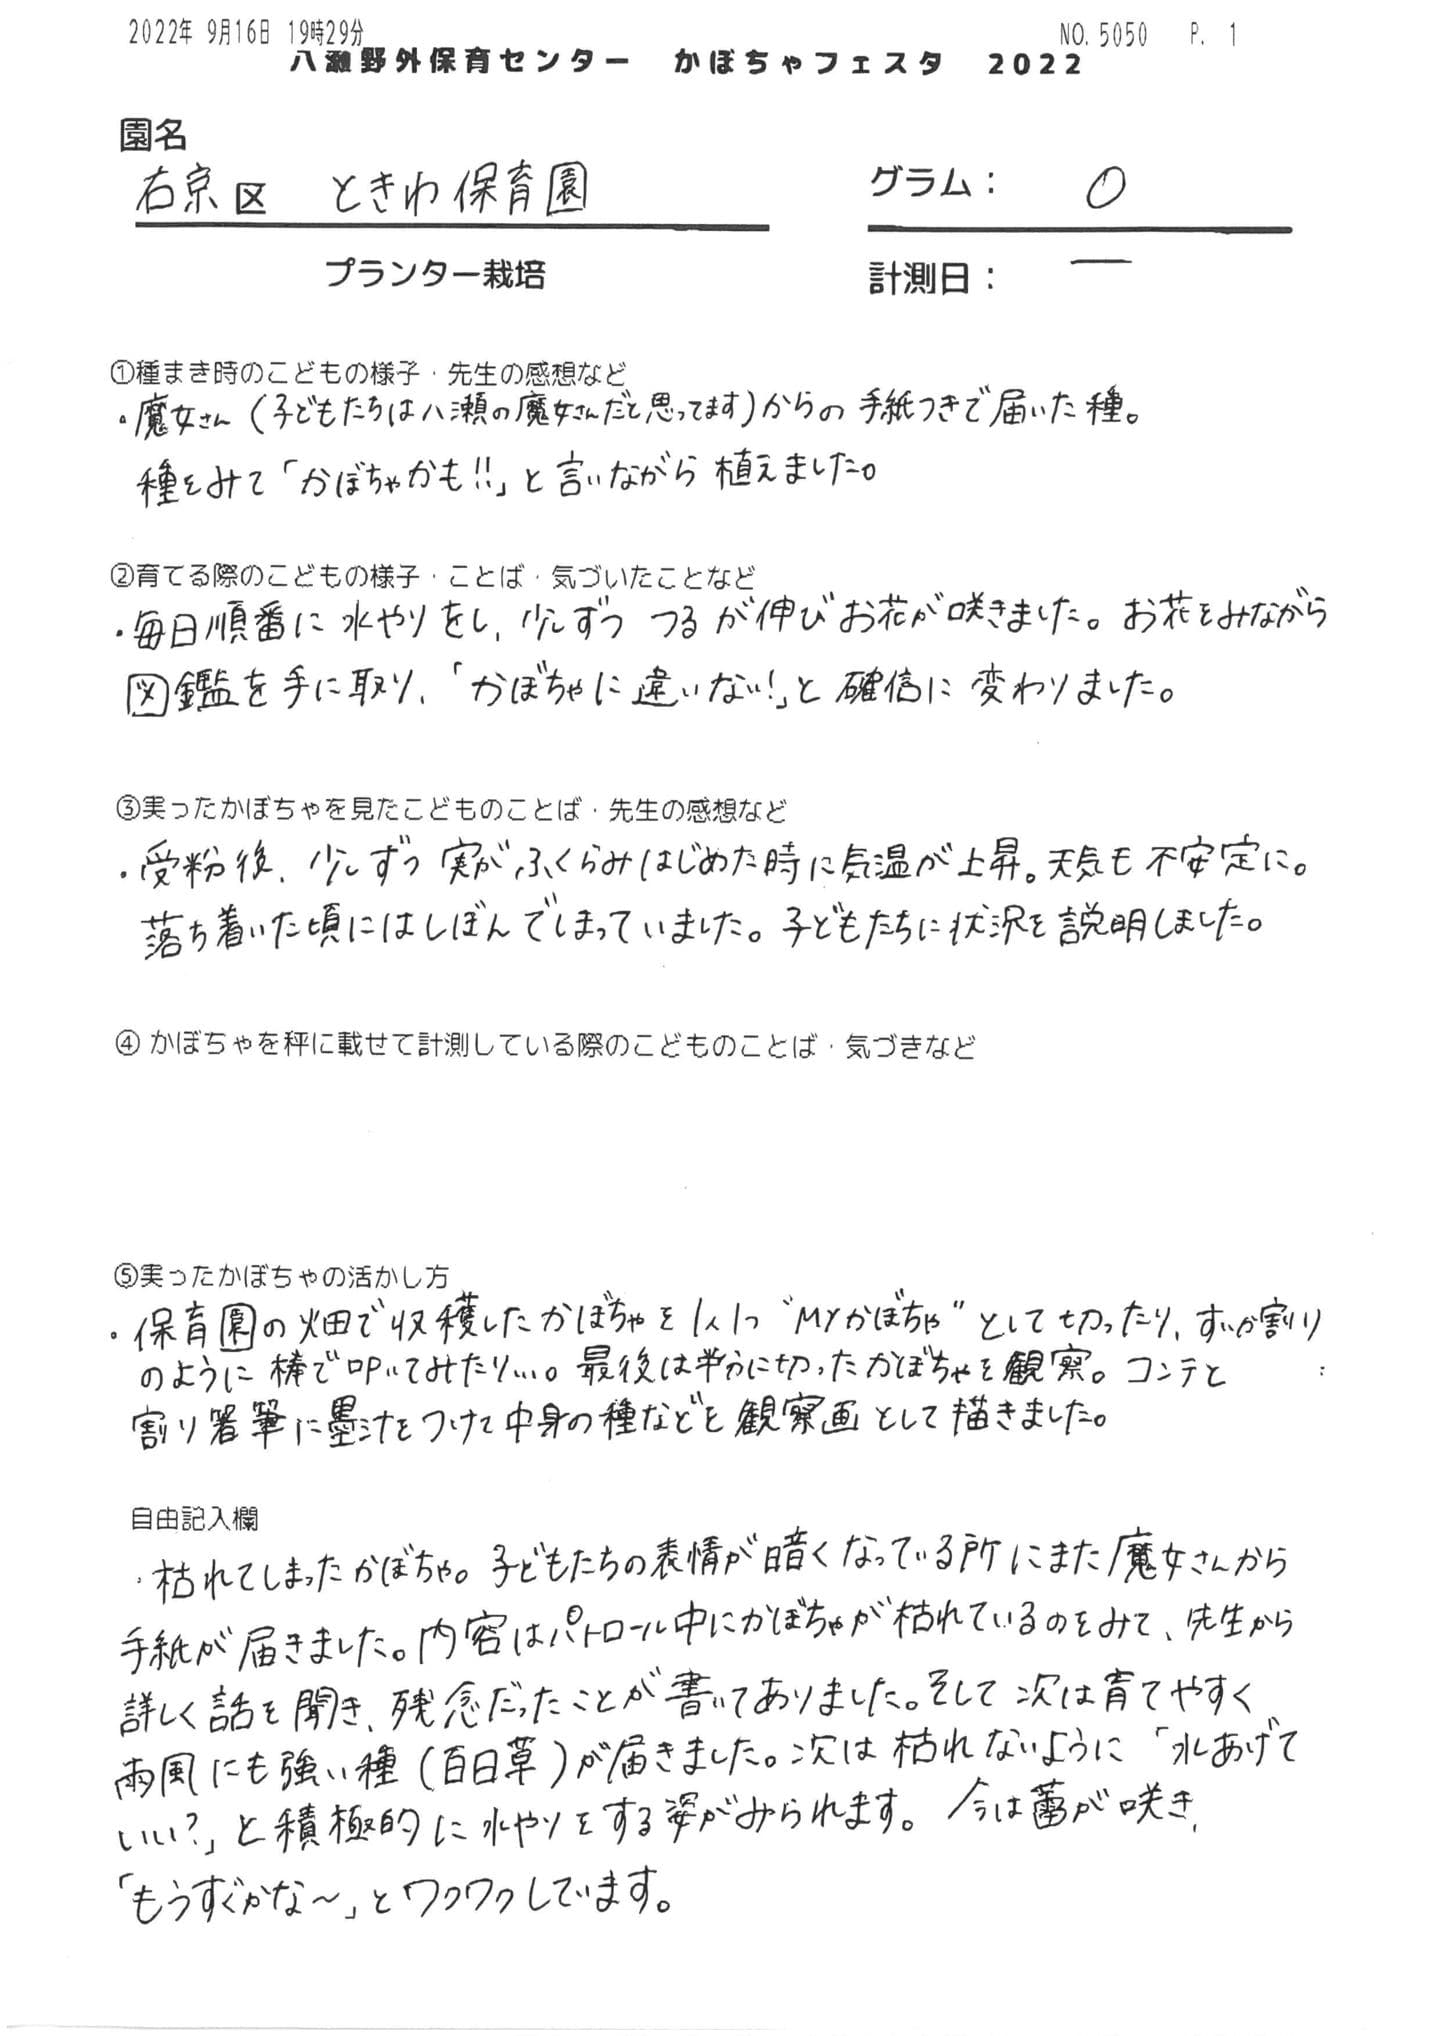 2022年 9月16日 19時29分
NO.5050 P. 1
八瀬野外保育センター かぼちゃフェスタ 2022
園名
右京区 ときわ保育園
グラム： 0
プランター栽培
計測日： ー
①種まき時のこどもの様子・先生の感想など
・魔女さん（子どもたちは八瀬の魔女さんだと思ってます）からの手紙つきで届いた種。
種をみて「かぼちゃかも!!」と言いながら植えました。
②育てる際のこどもの様子・ことば・気づいたことなど
・毎日順番に水やりをし、少しずつ つるが伸びお花が咲きました。お花をみながら
図鑑を手に取り、「かぼちゃに違いない!」と確信に変わりました。
③実ったかぼちゃを見たこどものことば・先生の感想など
・受粉後、少しずつ実がふくらみはじめた時に気温が上昇。天気も不安定に。
落ち着いた頃にはしぼんでしまっていました。子どもたちに状況を説明しました。
④ かぼちゃを秤に載せて計測している際のこどものことば・気づきなど
⑤実ったかぼちゃの活かし方
・保育園の畑で収穫したかぼちゃを1人1つ“MYかぼちゃ”として切ったり、すいか割り
のように棒で叩いてみたり…。最後は半分に切ったかぼちゃを観察。コンテと
割り箸筆に墨汁をつけて中身の種などを観察画として描きました。
自由記入欄
・枯れてしまったかぼちゃ。子どもたちの表情が暗くなっている所にまた魔女さんから
手紙が届きました。内容はパトロール中にかぼちゃが枯れているのをみて、先生から
詳しく話を聞き、残念だったことが書いてありました。そして次は育てやすく
雨風にも強い種（百日草）が届きました。次は枯れないように「水あげて
いい?」と積極的に水やりをする姿がみられます。今は蕾が咲き、
「もうすぐかな〜」とワクワクしています。